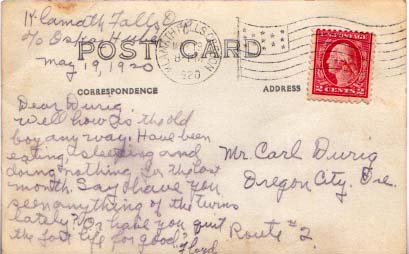 Klamath Falls O
c/o Oskar Huber
May 19, 1920
POST CARD
KLAMATH FALLS OREGON
1920
2 CENTS 2
CORRESPONDENCE
ADDRESS
Dear Durig.
Well how is the old
boy any way. Have been
eating & sleeping and
doing nothing for the last
month. Say have you
seen anything of the twins
lately? Or have you quit
the fast life for good?
Floyd
Mr. Carl Durig
Oregon City, Ore.
Route #2.